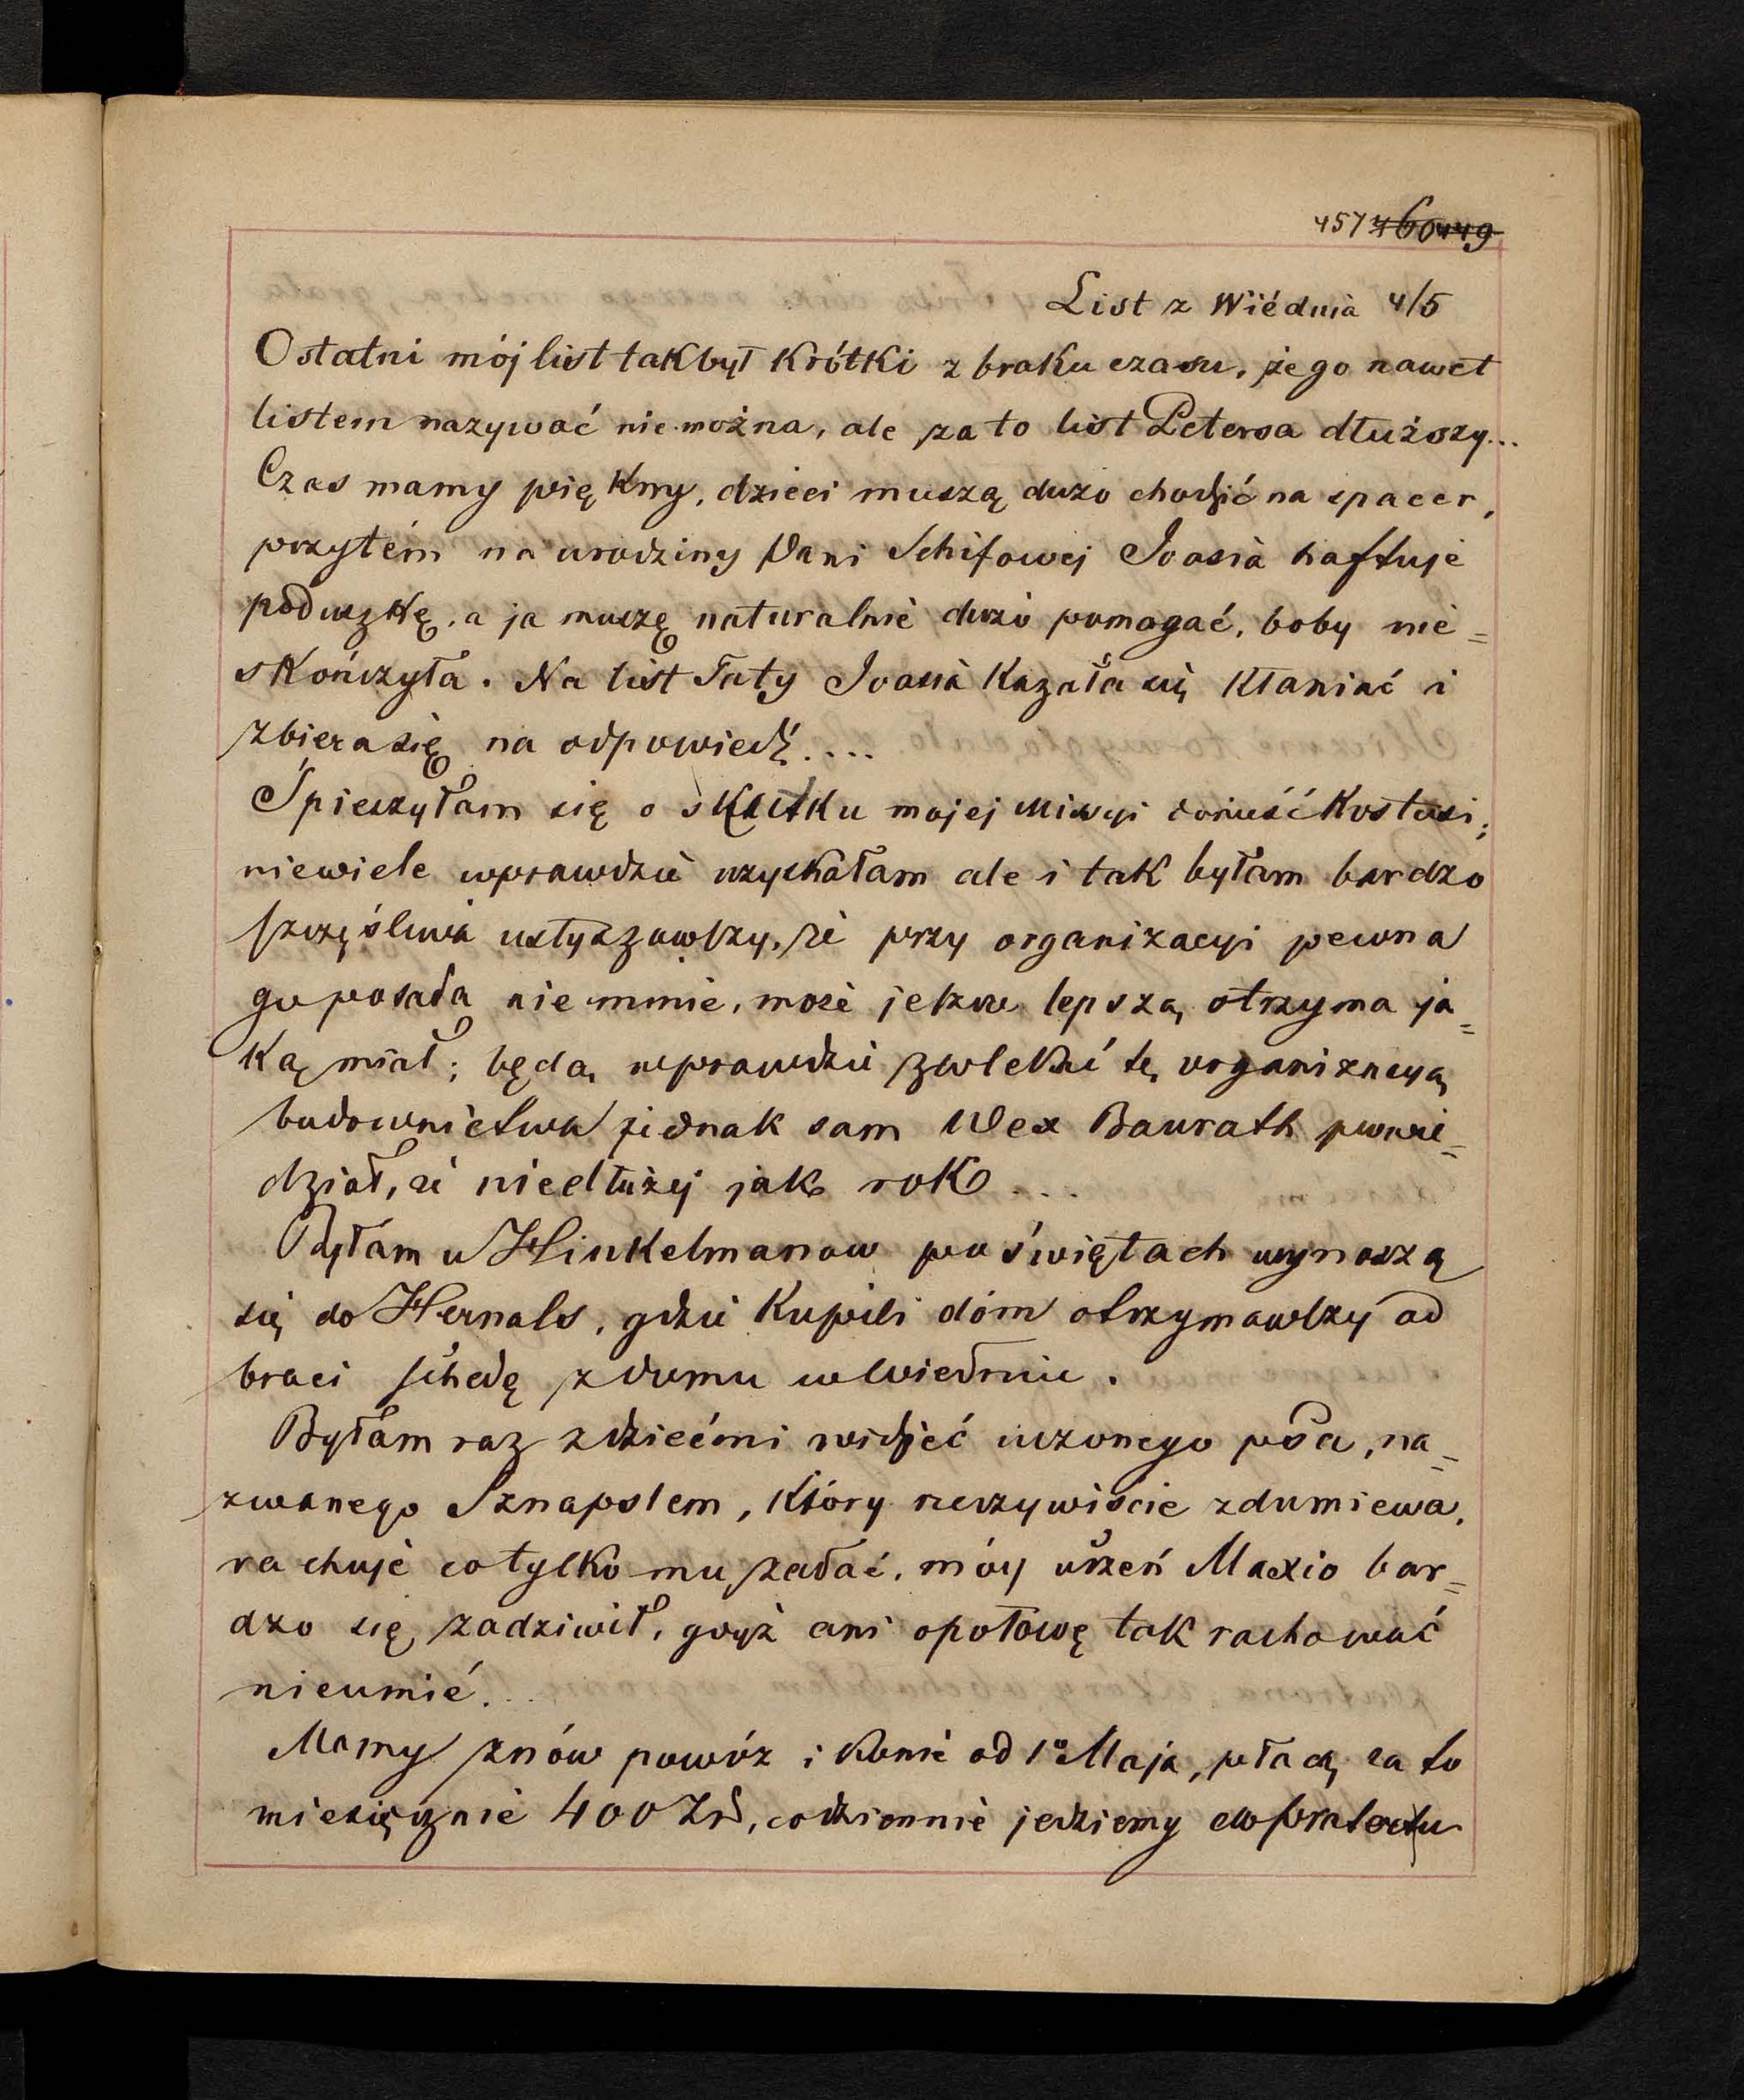 457 460449
List z Wiédnia 4/5
Ostatni mój list tak był krótki z braku czasu, że go nawet
listem nazywać nie można, ale za to list Petersa dłuższy...
Czas mamy piękny, dzieci muszą dużo chodzić na spacer,
przytém na urodziny Pani Schifowej Joasia haftuje
poduszkę, a ja muszę naturalnie dużo pomagać, boby nie=
skończyła. Na list Taty Joasia kazała się kłaniać i
zbiera się na odpowiedź....
Spieszyłam się o skutku mojej misyi donieść Kostusi;
niewiele wprawdzie uzyskałam ale i tak byłam bardzo
szczęśliwa usłyszawszy, że przy organizacyi pewna
go posada nie minie, może jeszcze lepszą otrzyma ja=
ką miał; będą wprawdzie zwlekać tę organizacyą
budownictwa jednak sam Wex Baurath powie=
dział, że niedłużej jak rok...
Byłam u Hinkelmanow po świętach wynoszą
się do Hernals, gdzie kupili dóm otrzymawszy od
braci schedę z domu w Wiedniu.
Byłam raz z dziećmi widzieć uczonego psa, na=
zwanego Sznapslem, który rzeczywiście zdumiewa,
rachuje co tylko mu zadać, mój uczeń Maxio bar=
dzo się zadziwił, gdyż ani o połowę tak rachować
nieumié...
Mamy znów powóz i konie od 1º Maja, płacą za to
miesięcznie 400 Zł, codziennie jedziemy do